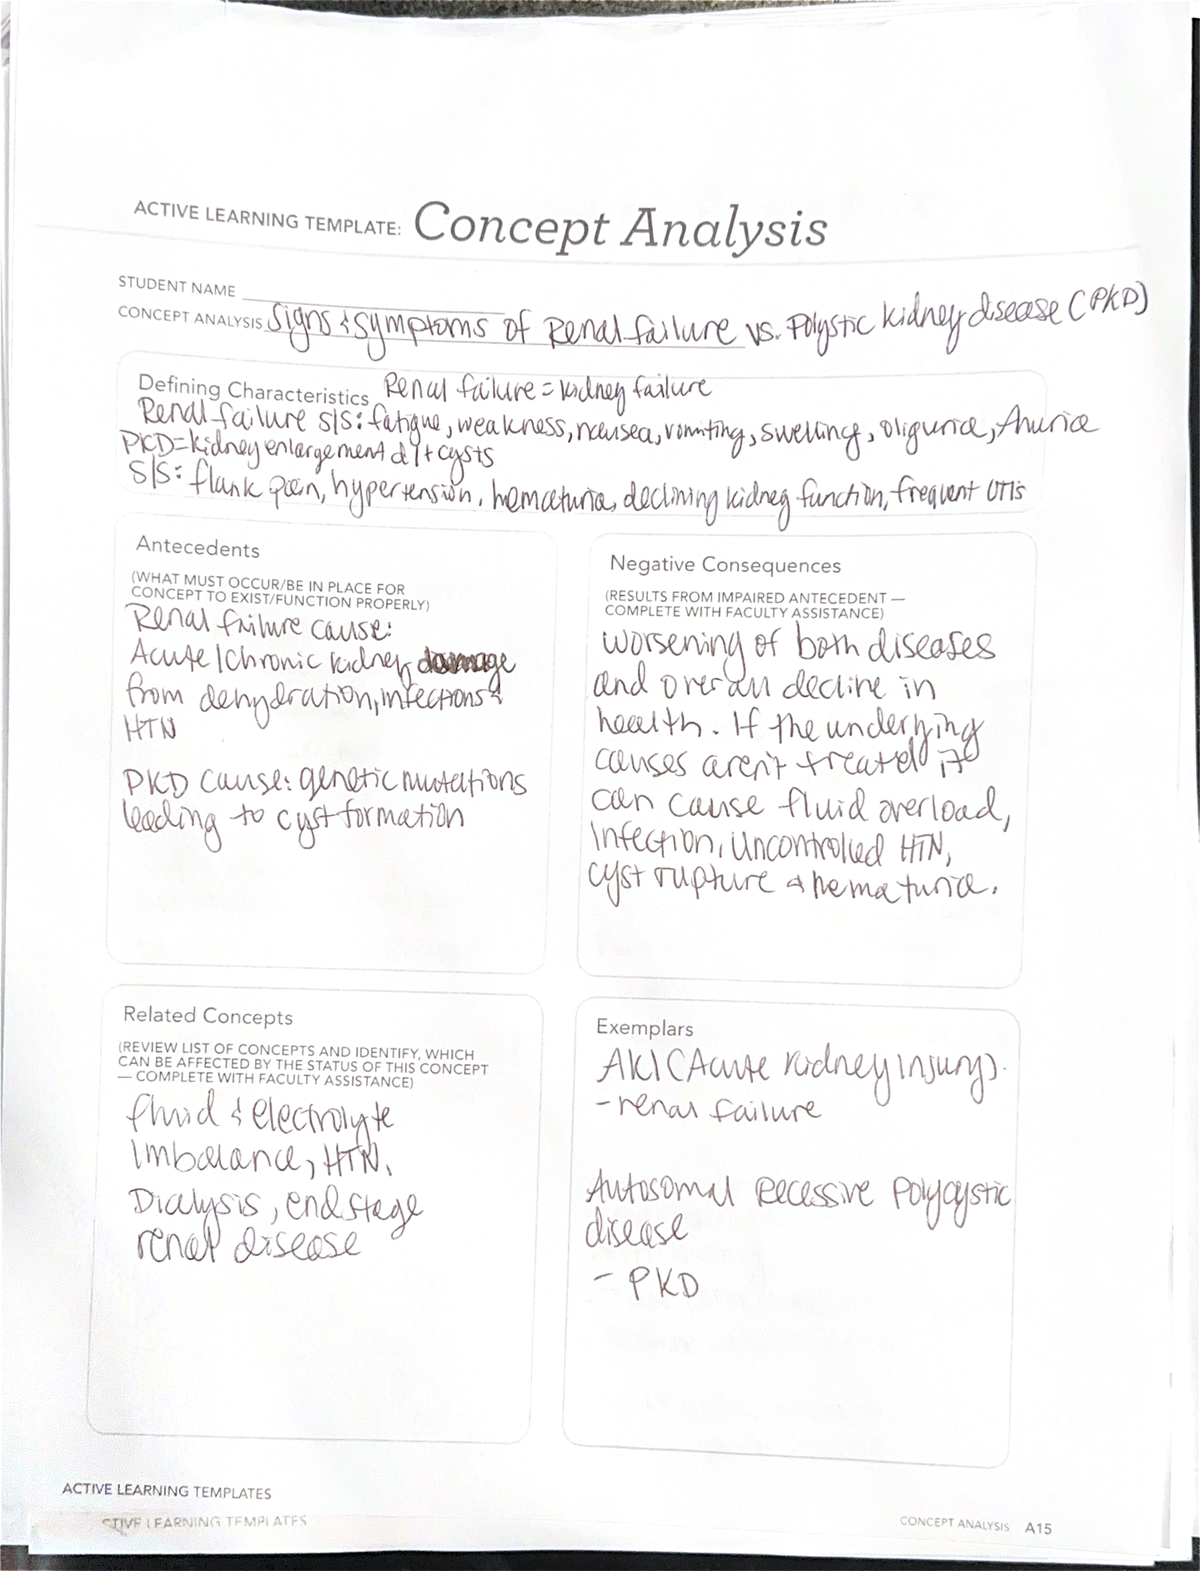 ACTIVE LEARNING TEMPLATE: Concept Analysis
STUDENT NAME
CONCEPT ANALYSIS Signs & symptoms of Renal failure vs. Polystic kidney disease (PKD)
Defining Characteristics Renal failure = kidney failure
Renal failure S/S: fatigue, weakness, nausea, vomiting, swelling, oliguria, Anuria
PKD = kidney enlargement d/t cysts
S/S: flank pain, hypertension, hematuria, declining kidney function, frequent UTIs
Antecedents
(WHAT MUST OCCUR/BE IN PLACE FOR
CONCEPT TO EXIST/FUNCTION PROPERLY)
Renal failure cause:
Acute/Chronic kidney damage
from dehydration, infections &
HTN
PKD cause: genetic mutations
leading to cyst formation
Negative Consequences
(RESULTS FROM IMPAIRED ANTECEDENT —
COMPLETE WITH FACULTY ASSISTANCE)
worsening of both diseases
and overall decline in
health. If the underlying
causes aren't treated it
can cause fluid overload,
Infection, Uncontrolled HTN,
cyst rupture & hematuria.
Related Concepts
(REVIEW LIST OF CONCEPTS AND IDENTIFY, WHICH
CAN BE AFFECTED BY THE STATUS OF THIS CONCEPT
— COMPLETE WITH FACULTY ASSISTANCE)
fluid & electrolyte
Imbalance, HTN,
Dialysis, end stage
renal disease
Exemplars
AKI (Acute Kidney Injury).
- renal failure
Autosomal Recessive Polycystic
disease
- PKD
ACTIVE LEARNING TEMPLATES
CTIVE LEARNING TEMPLATES
CONCEPT ANALYSIS A15